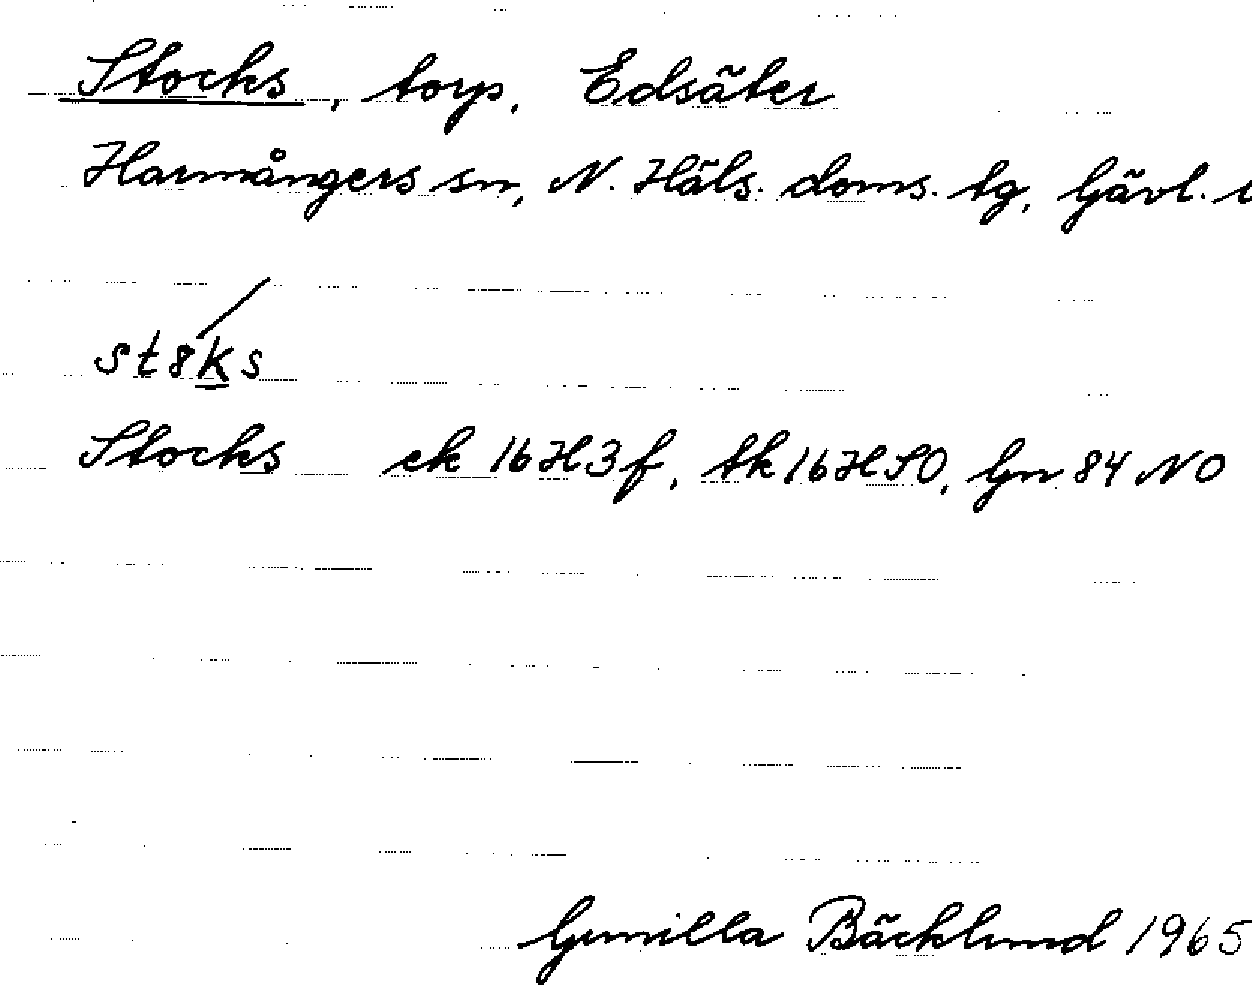 Stocks, torp, Edsäter
Harmångers sn, N. Häls. doms. tg, Gävl.
st8ks
Stocks ek 16H3f, tk 16HSO, Gn 84 NO
Gunilla Bäcklund 1965